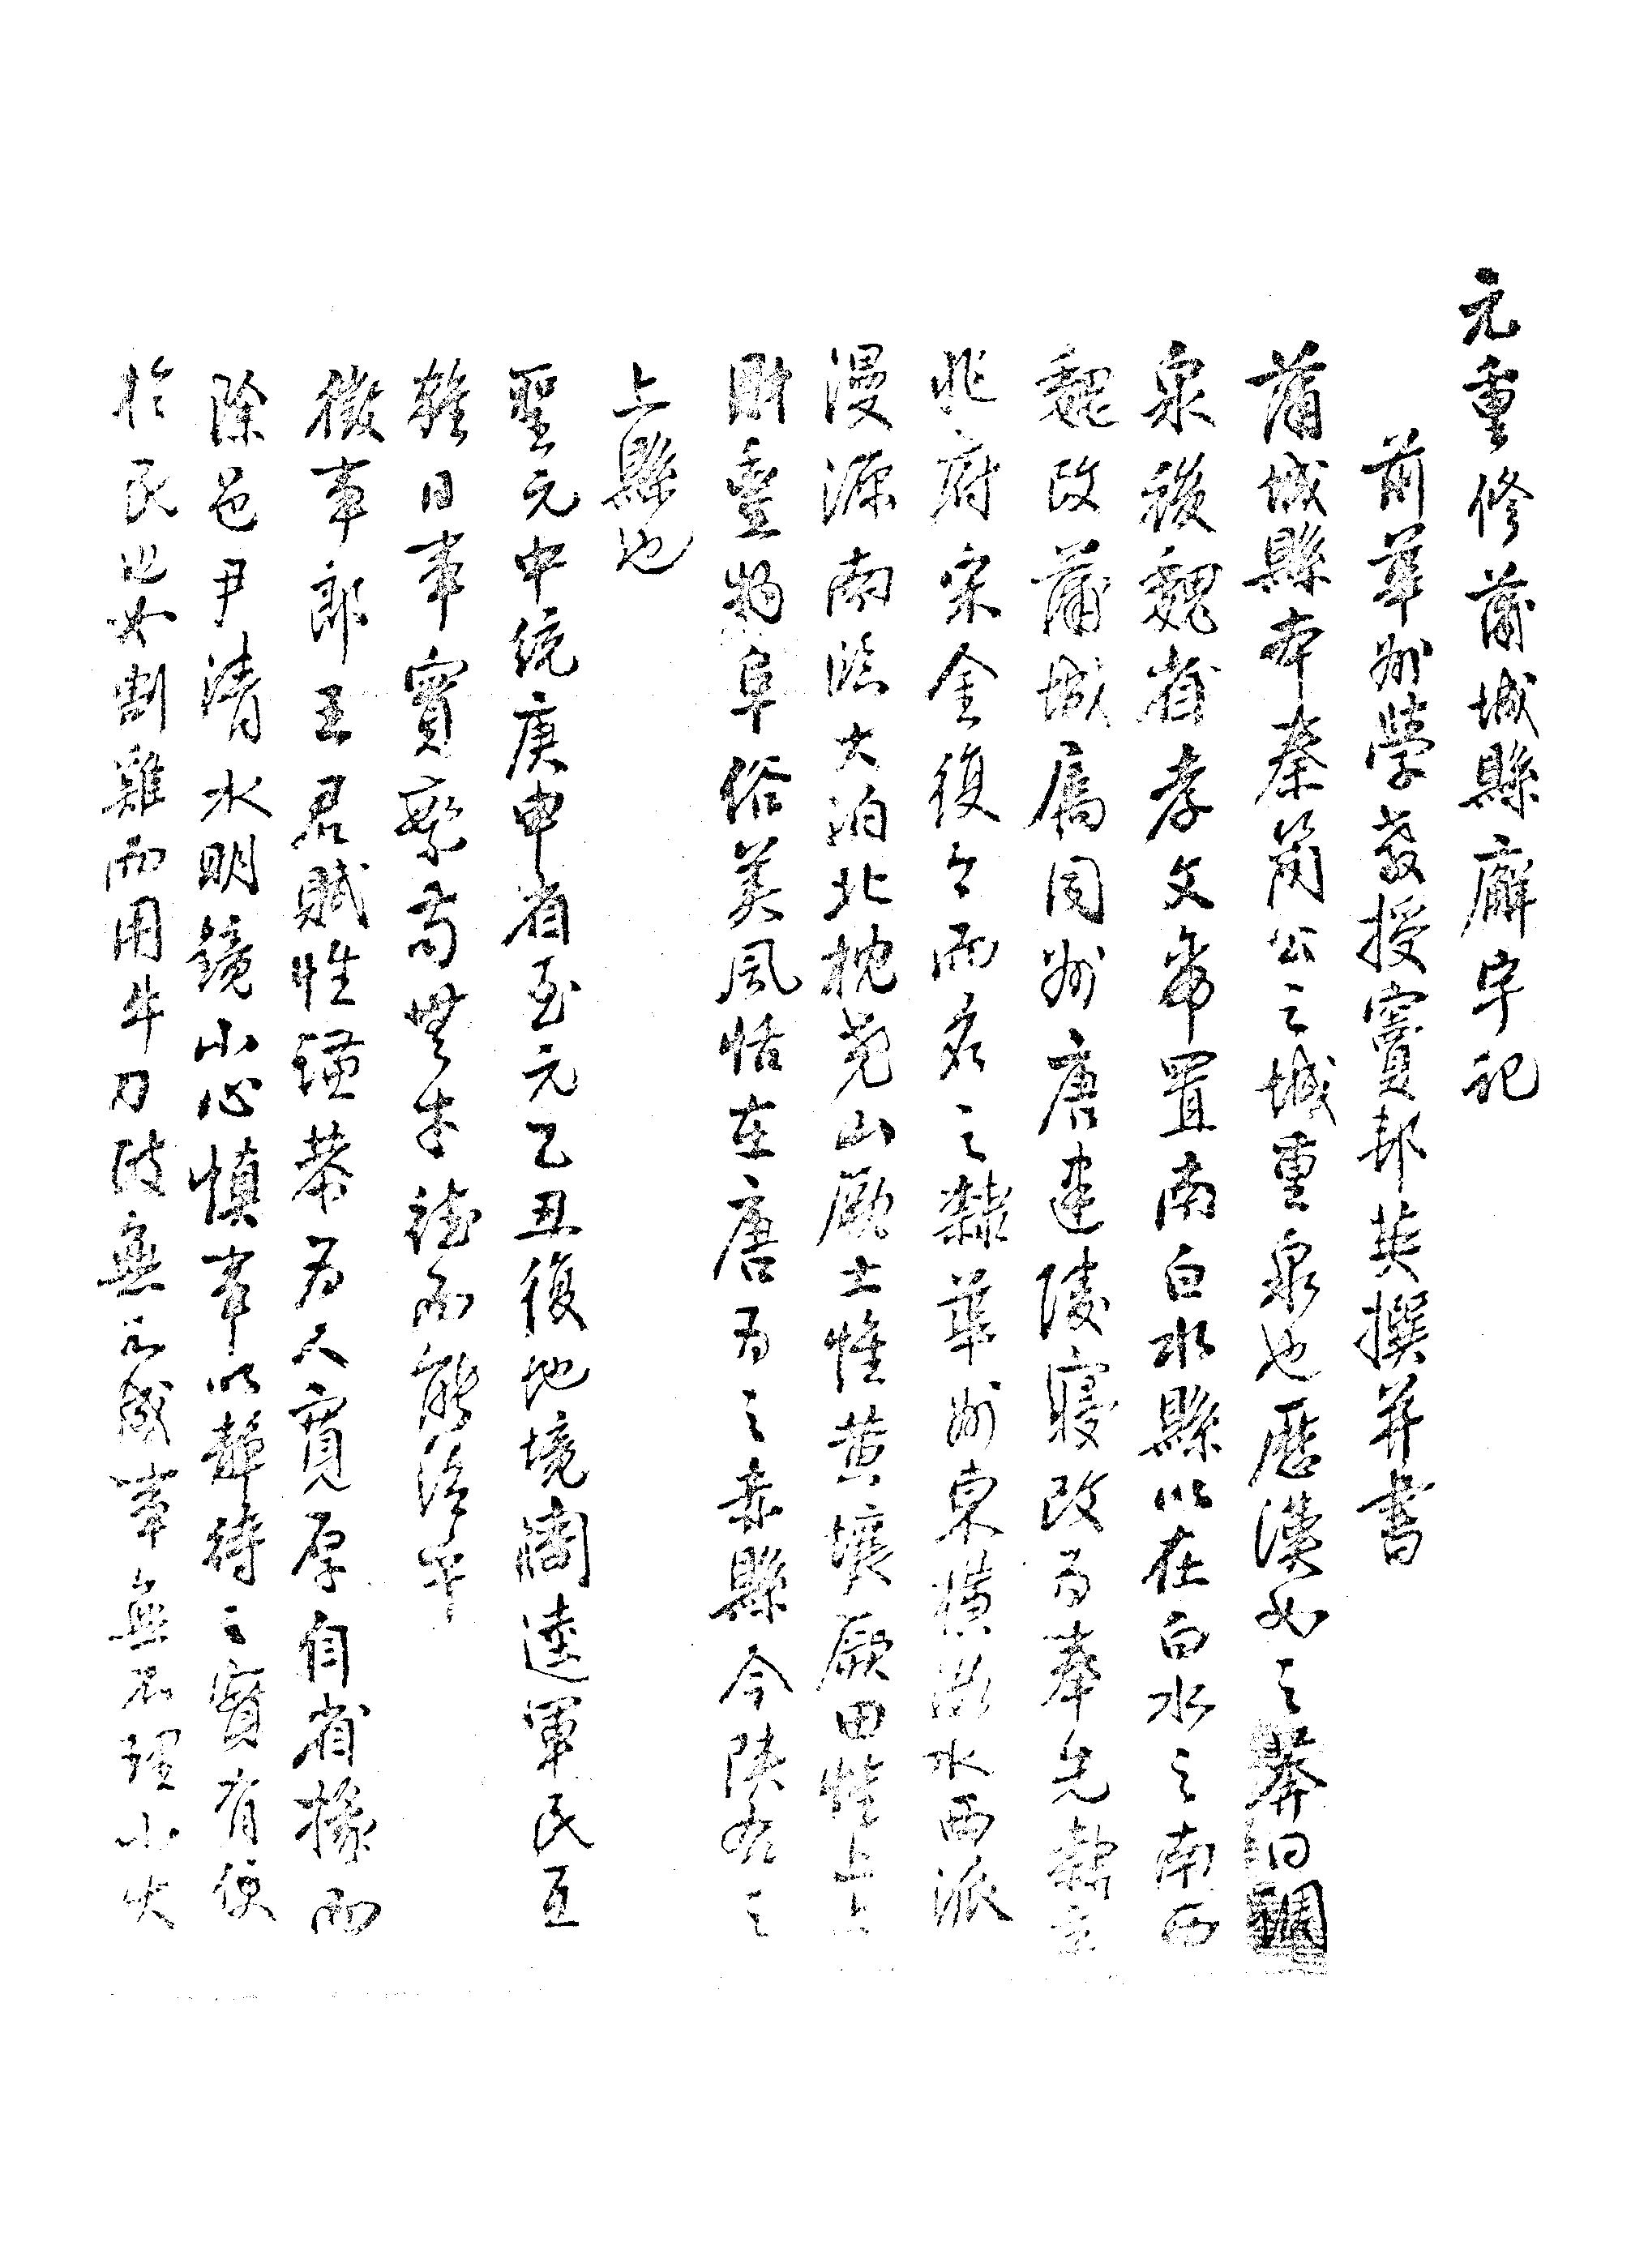 元重修蒲城縣廨宇記
前華州學教授竇邦英撰并書
蒲城縣本秦簡公之城重泉也歷漢如之莽曰調
泉後魏省孝文帝置南白水縣以在白水之南西
魏改蒲城屬同州唐建陵寢改為奉先隸京
兆府宋金復今而名之隸華州東橫洛水西派
漫源南臨大泊北枕堯山厥土惟黃壤厥田惟上上
財豐物阜俗美風恬在唐為之赤縣今陝右之
上縣也
聖元中統庚申省至元乙丑復地境闊遠軍民互
雜日事實繁苟無才德不能治乎
徵事郎王君賦性謹恭為人寬厚自省掾而
除邑尹清水明鏡小心慎事以靜待之實有便
於民也如割雞而用牛刀政無不成事無不理小大